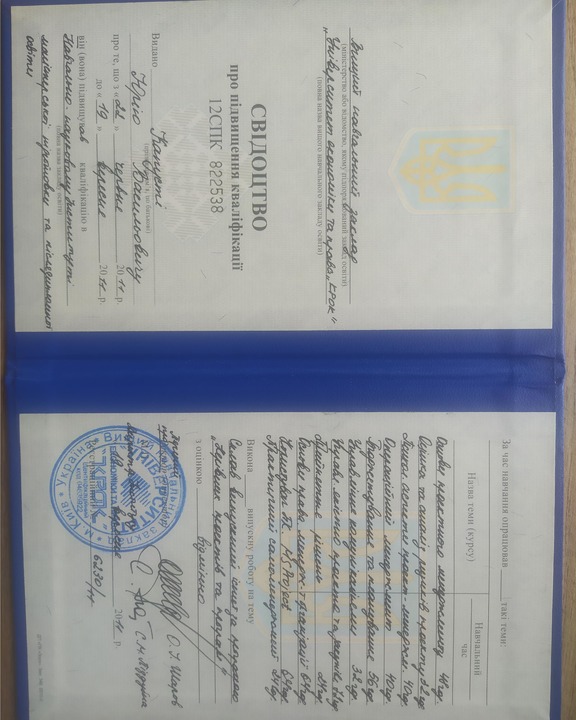 Вищий навчальний заклад
(міністерство або відомство, якому підпорядкований заклад освіти)
„Університет економіки та права „КРОК"
(повна назва вищого навчального закладу освіти)
СВІДОЦТВО
про підвищення кваліфікації
12СПК 822538
Видано Капусті
(прізвище, ім'я, по батькові)
Юрію Васильовичу
про те, що з «22» червня 2011 р.
до «19» вересня 2011 р.
він (вона) підвищував кваліфікацію в
Навчально-науковому інституті
(повна назва закладу освіти)
магістерської підготовки та післядипломної
освіти
За час навчання опрацював такі теми:
Назва теми (курсу)
Навчальний
час
Основи проєктного менеджменту 48 год.
Оцінка та аналіз ризиків проєкту 32 год
Психол. аспекти проєкт-менеджм. 40 год.
Операційний менеджмент 40 год.
Бюджетування та планування 56 год
Управління комунікаціями 32 год.
Управл. якістю проєкта та 72 год
Прийняття рішень 24 год.
Основи права. менедж-т організації 64 год.
Користувач ПК. MS Project 64 год.
Практичний самоменеджмент 24 год
Викона випускну роботу на тему
Склав випускний іспит за програмою
„Керівник проєктів та програм"
з оцінкою відмінно
О.І. Шаров
19 вересня 2011 р.
6230/11
Вищий навчальний заклад
УНІВЕРСИТЕТ
ЕКОНОМІКИ ТА ПРАВА
"КРОК"
Ідентифікаційний
код 04635922
Україна * м. Київ